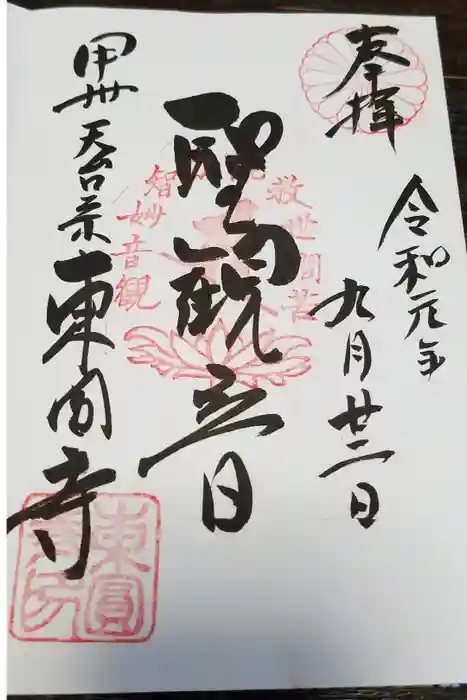 奉拝
令和元年
九月廿二日
聖馬観音
観音妙智力能救世間苦
甲州天台宗東円寺
東圓